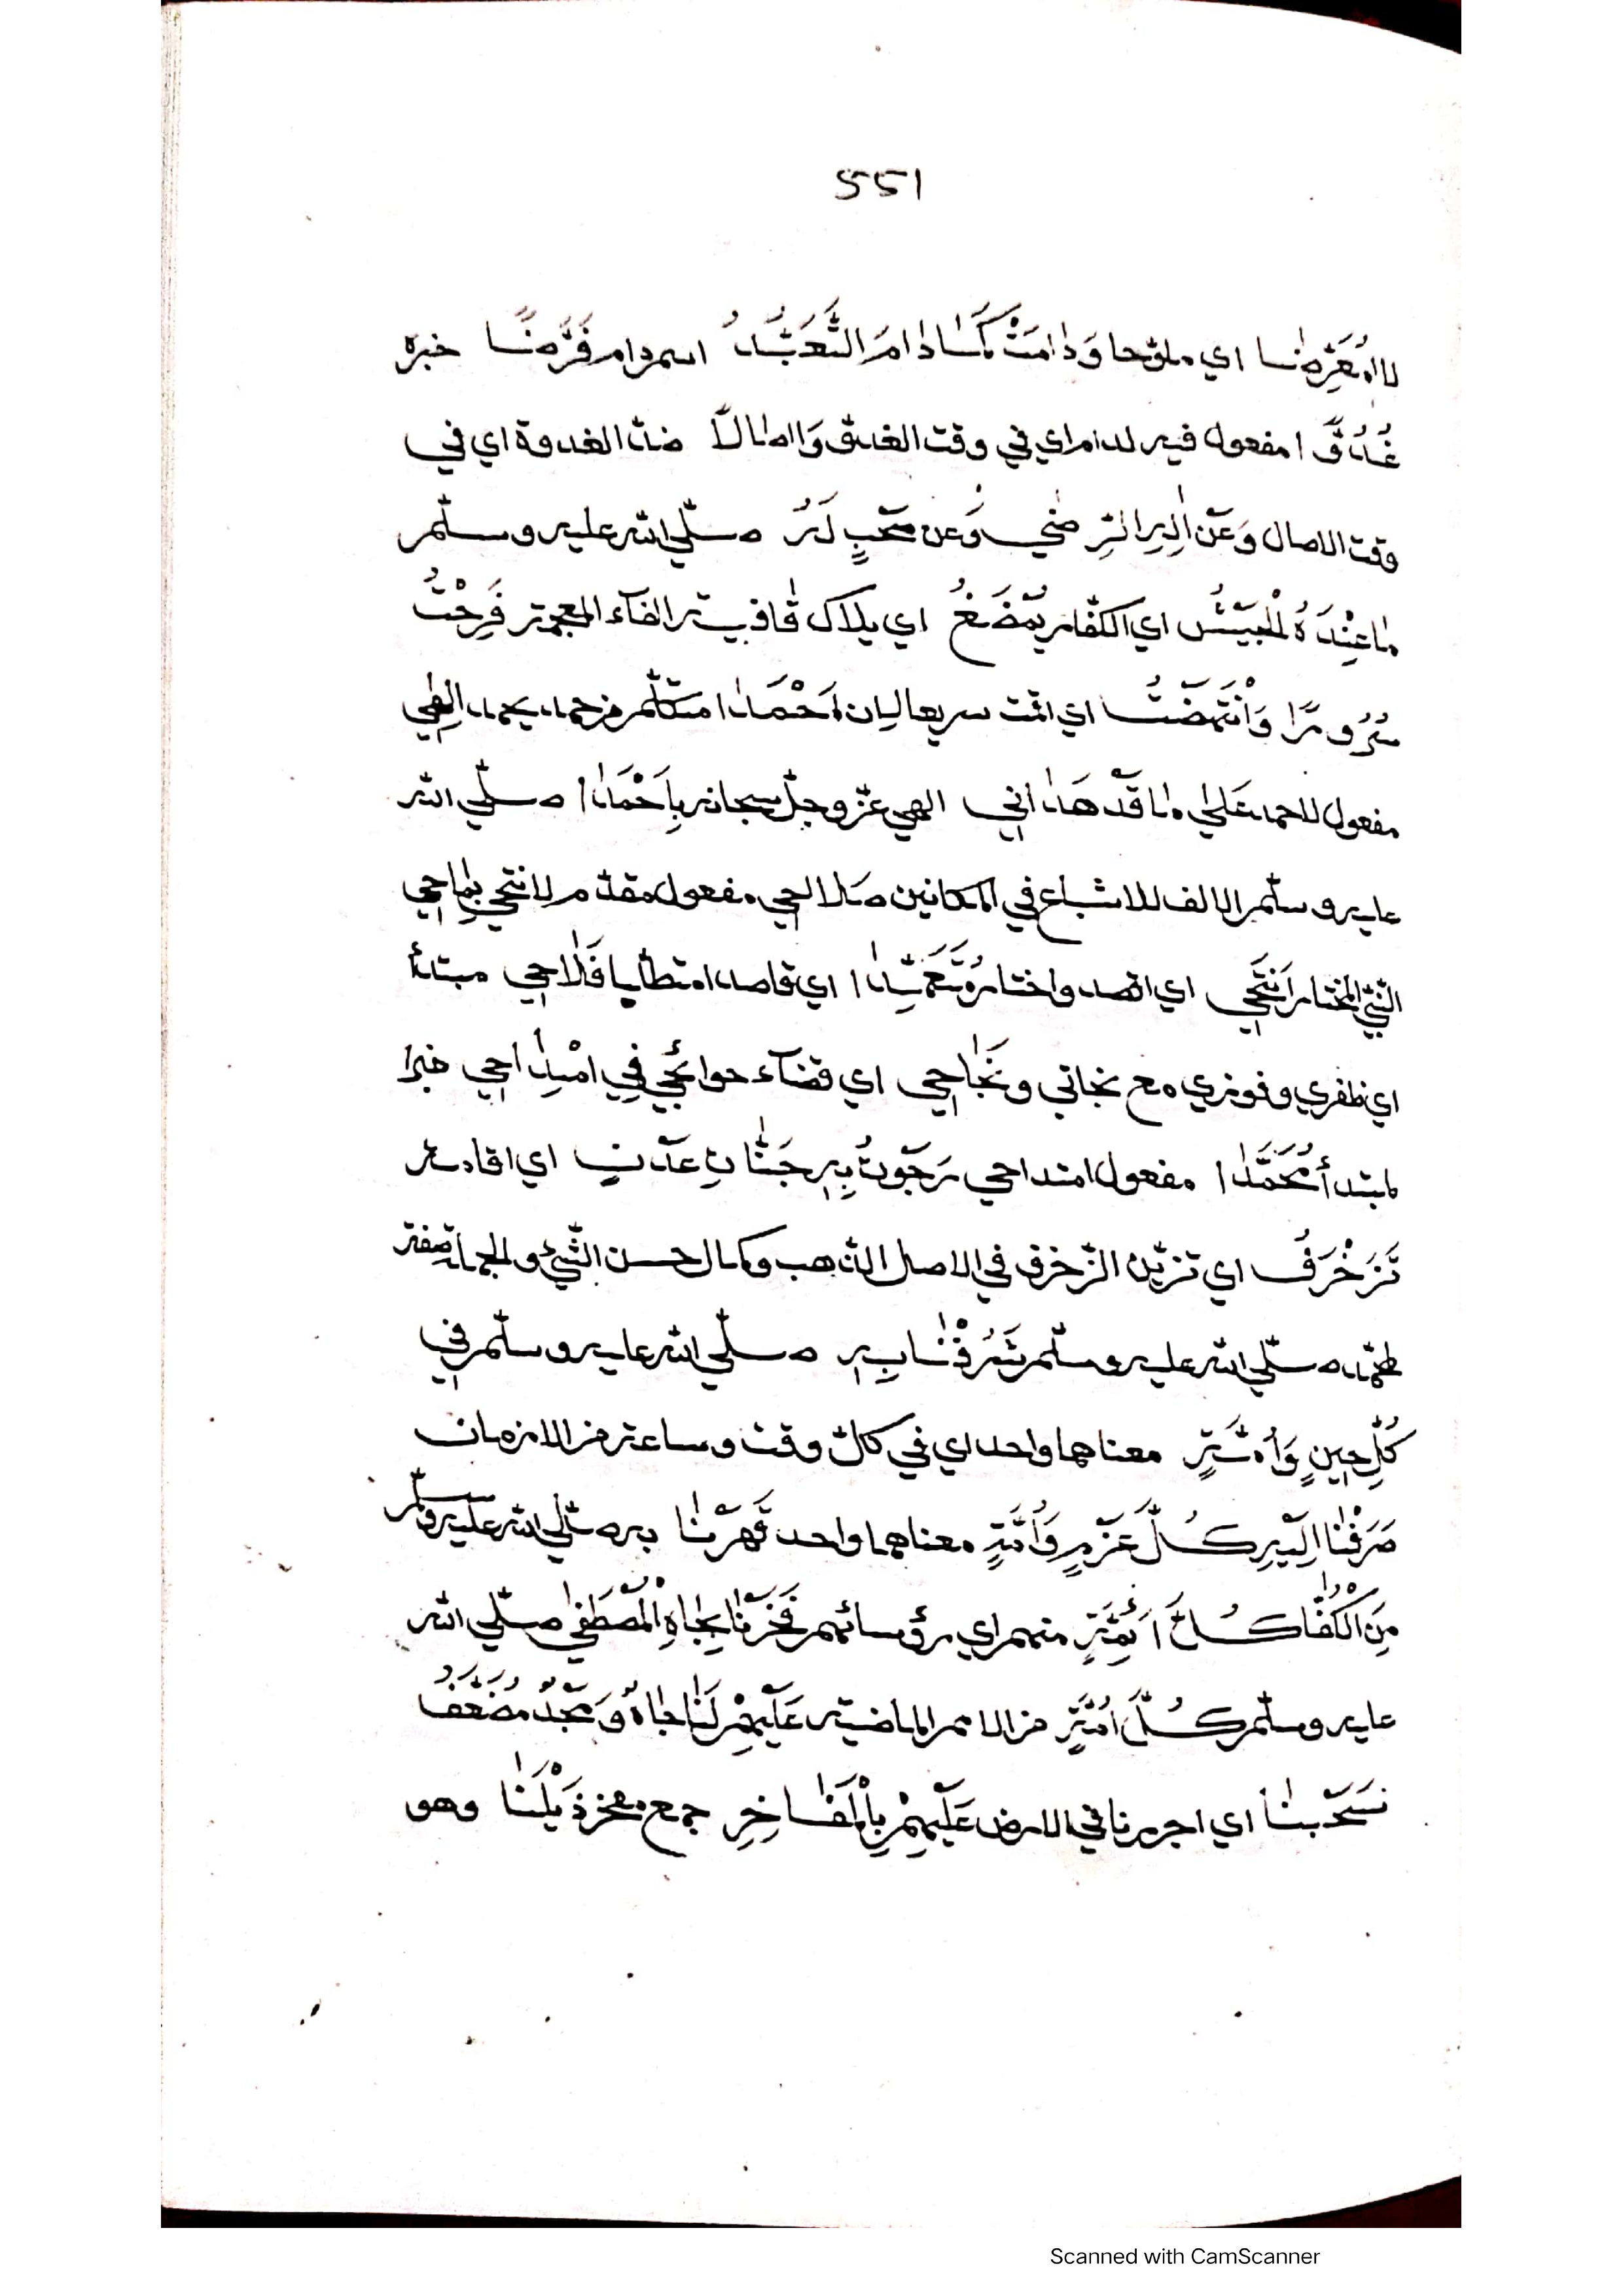 551
لا مُعَرِّضًا اي ملوّحا وَدَامَتْ كَمَا دَامَ التَّعَبُّدُ اسم دام فَرَّضًا خبره
غُدُوًّا مفعول فيه لدام اي في وقت الغدوّ وَاصَالًا ضدّ الغدوة اي في
وقت الاصال وَعَنْ اٰلِهِ الرِّضٰي وَعن صَحْبٍ لَهُ صلّي الله عليه وسلّم
مَا عِنْدَهُ الْجَيْشُ اي الكفّار يُمْضَغُ اي يلاك قافية الضآء المعجمة فَرِحْتُ
سُرُورًا وَانْتَهَضْتُ اي اقمت سريعا لان اَحْمَدَا متكلّم من حمد يحمد اِلٰهِي
مفعول لاحمد عَلٰي مَا قَدْ هَدَانِي الهي عزّ وجلّ سبحانه بِاَحْمَدَا صلّي الله
عليه وسلّم الالف للاشباع في المكانين صَلَاحِي مفعول مقدّم لانتحي بِمَاحِي
النّبيّ المختار اَنْتَحِي اي اقصد واختار مُتَعَمِّدَا اي قاصدا متطلّبا فَلَاحِي مبتدأ
اي ظفري وفوزي مع نجاتي ونَجَاحِي اي قضآء حوائجي فِي امْتِدَاحِي خبر
لمبتدأ مُحَمَّدَا مفعول امتداحي رَجَوْتُ بِهِ جَنَّاتِ عَدْنٍ اي اقامة
تَزَخْرَفُ اي تزيّن الزّخرف في الاصل الذّهب وكمال حسن الشّيئ والجملة صفة
صلّي الله عليه وسلّم شَرُفْنَا بِهِ صلّي الله عليه وسلّم في
كُلِّ حِينٍ وَاُمَّةٍ معناهما واحد اي في كلّ وقت وساعة من الازمان
صَرَفْنَا اِلَيْهِ كُلَّ عَزْمٍ وَاُمَّةٍ معناهما واحد قَهَرْنَا به صلّي الله عليه وسلّم
مِنَ الْكُفَّارِ كُلَّ اَئِمَّةٍ منهم اي رؤسائهم فَخَرْنَا بِجَاهِ الْمُصْطَفٰي صلّي الله
عليه وسلّم كُلَّ اُمَّةٍ من الامم الماضية عَلَيْهِمْ لَنَا جَاهٌ وَمَجْدٌ مُضَعَّفُ
سَحَبْنَا اي اجررنا في الارض عَلَيْهِمْ بِالْمَفَاخِرِ جمع مفخر ذَيْلَنَا وهو
Scanned with CamScanner